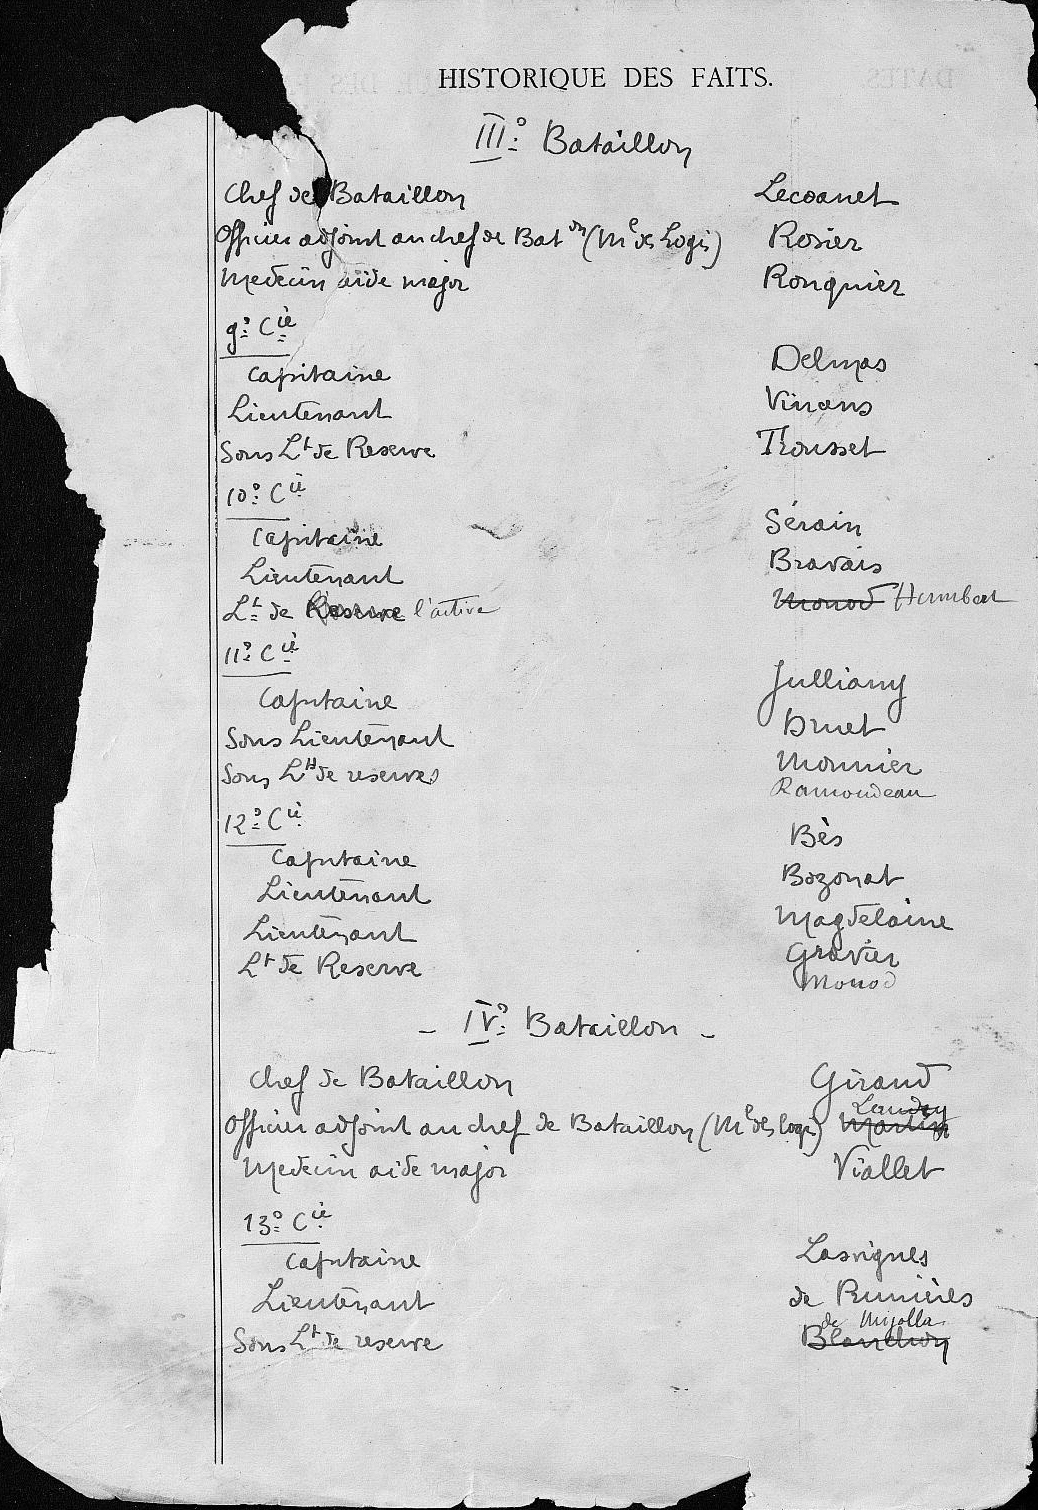 HISTORIQUE DES FAITS.
IIIº Bataillon
Chef de Bataillon Lecoanet
Officier adjoint au chef de Batᵒⁿ (Mᵉ des Logis) Rosier
Medecin aide major Ronquier
9º Cⁱᵉ
Capitaine Delmas
Lieutenant Vinans
Sous Lᵗ de Reserve Trousset
10º Cⁱᵉ
Capitaine Sérain
Lieutenant Bravais
Lᵗ de Reserve l'active Monod Humbert
11º Cⁱᵉ
Capitaine Julliany
Sous Lieutenant Druet
Sous Lᵗˢ de reserves Monnier
Ramondeau
12º Cⁱᵉ
Capitaine Bès
Lieutenant Bozonat
Lieutenant Magdelaine
Lᵗ de Reserve Gravier
Monod
- IVº Bataillon -
Chef de Bataillon Giraud
Landry
Officier adjoint au chef de Bataillon (Mᵉ des logis) Martin
Medecin aide major Viallet
13º Cⁱᵉ
Capitaine Lasvignes
Lieutenant de Rumières
de Mijolla
Sous Lᵗ de reserve Blanchon